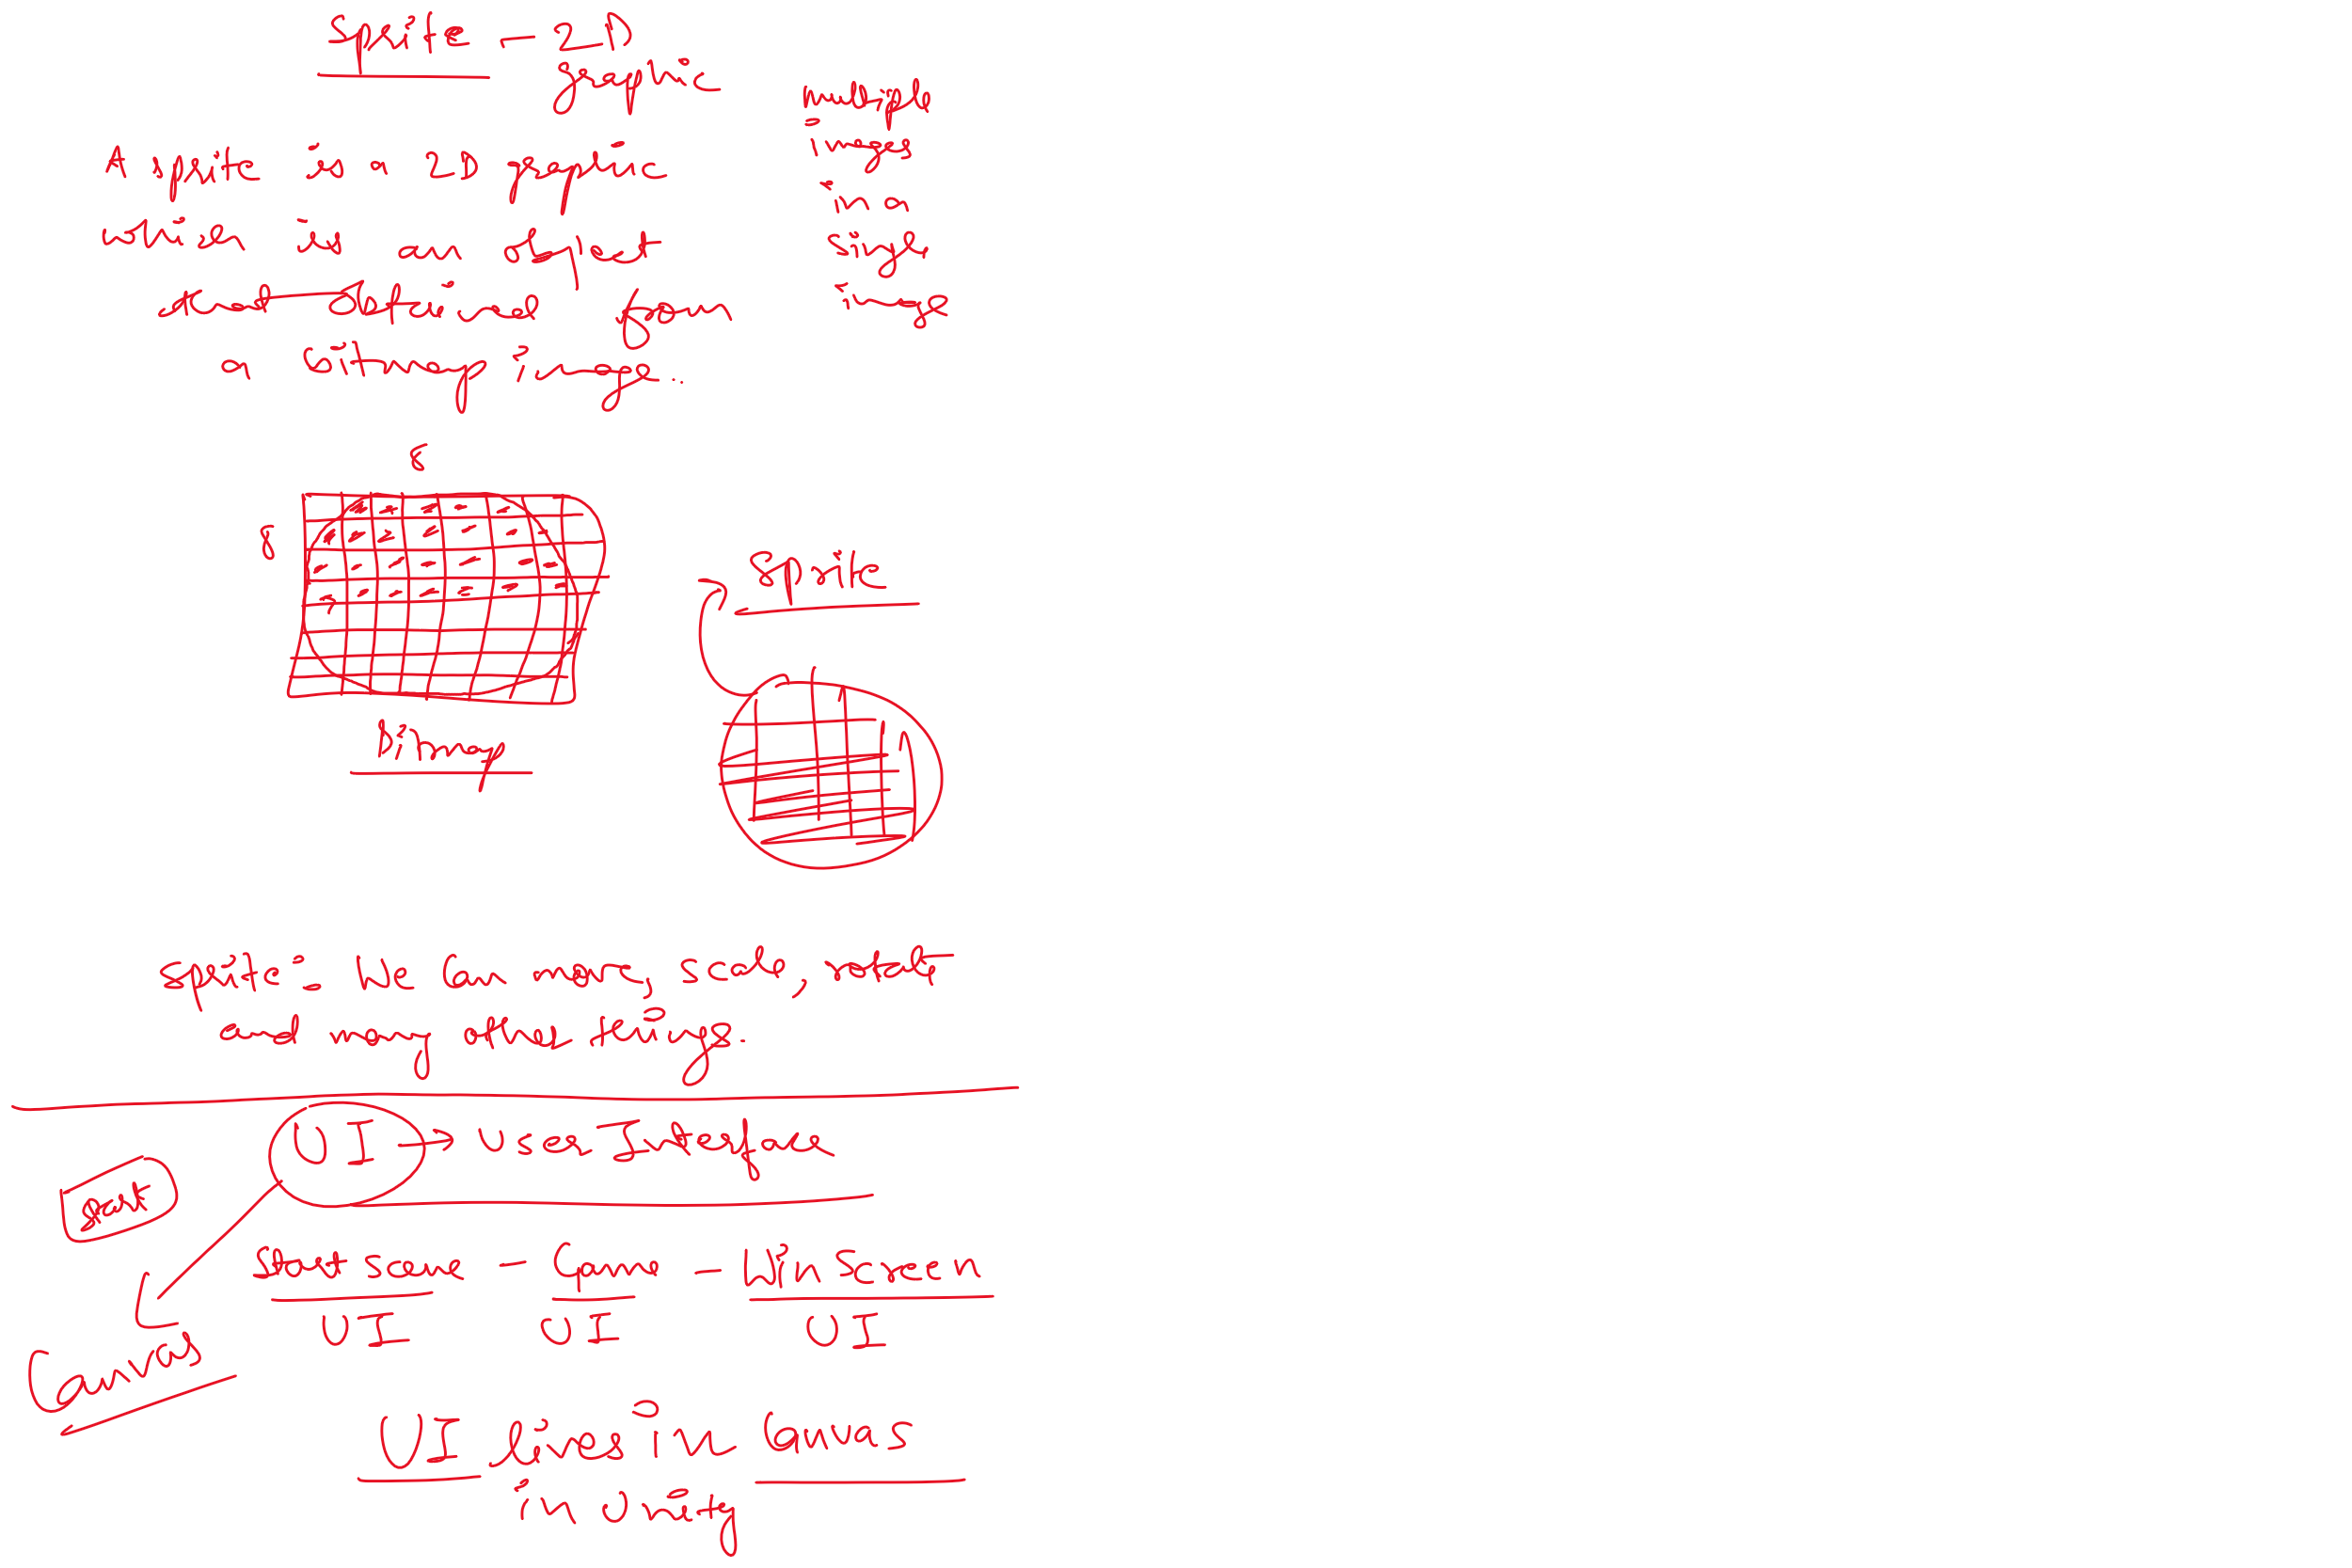 Sprite - 2D
graphic
A sprite is a 2D graphic
which is an object
obtained from
a bitmap image..
multiple
images
in a
single
image
8
8
Bitmap
Sprite
Sprite: We can move, scale, rotate
and many other things.
UI → User Interface
Start
Start scene - Game - Win Screen
UI UI UI
Canvas
UI lives in Canvas
in Unity